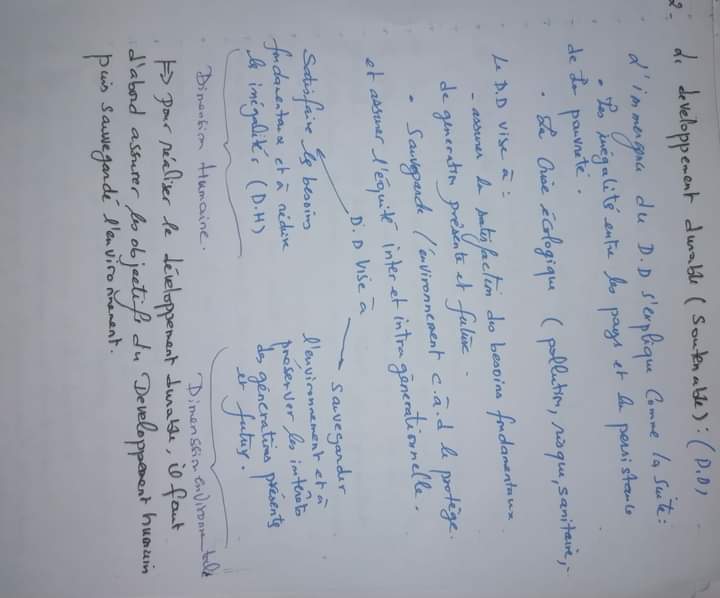 2- Le developpement durable (soutenable): (D.D)
L'immergna du D.D s'explique comme la suite:
• Les inégalité entre les pays et la persistance
de la pauvreté.
• La crise écologique (pollution, risque, sanitaire,-
Le D.D vise à:
- assurer la satisfaction des besoins fondamentaux
de génération présente et future.
• Sauvegarde l'environnement c.à.d le protège.
et assurer l'équité inter et intra générationnelle.
D.D vise à
Satisfaire les besoins
fondamentaux et à réduire
les inégalités (D.H)
Dimension Humaine.
Sauvegarder
l'environnement et à
préserver les intérêts
des générations présents
et futurs.
Dimenssion environmentale
⊢> pour réaliser le développement durable, il faut
d'abord assurer les objectifs du Developpement humain
puis sauvegardé l'environnement.